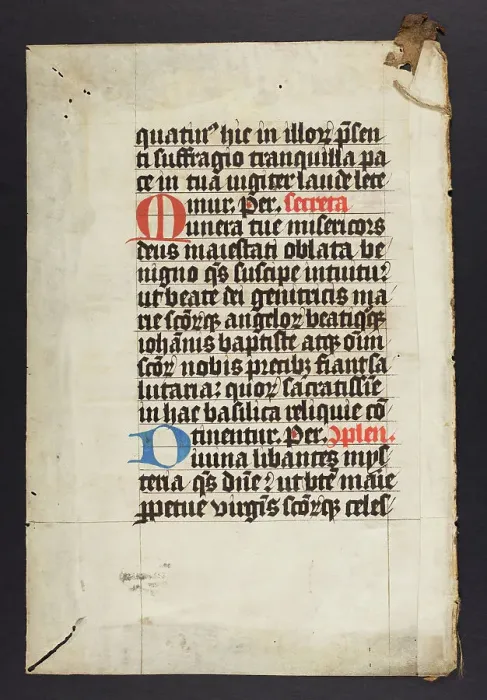 quatur hic in illoꝝ p̄sen
ti suffragio tranquilla pa
ce in tua iugiter laude lete
mur. Per. secreta
Munera tue misericors
deus maiestati oblata be
nigno q̄s suscipe intuitu:
ut beate dei genitricis ma
rie sc̄oꝝqꝫ angeloꝝ beatiqꝫ
iohānis baptiste atqꝫ om̄i
sc̄oꝝ nobis precibꝫ fiant sa
lutaria: quoꝝ sacratissīe
in hac basilica reliquie cō
tinentur. Per. ꝯplen.
Diuina libantes mys
teria q̄s dn̄e: ut bt̄e marie
ꝑpetue virgīs sc̄oꝝqꝫ celes